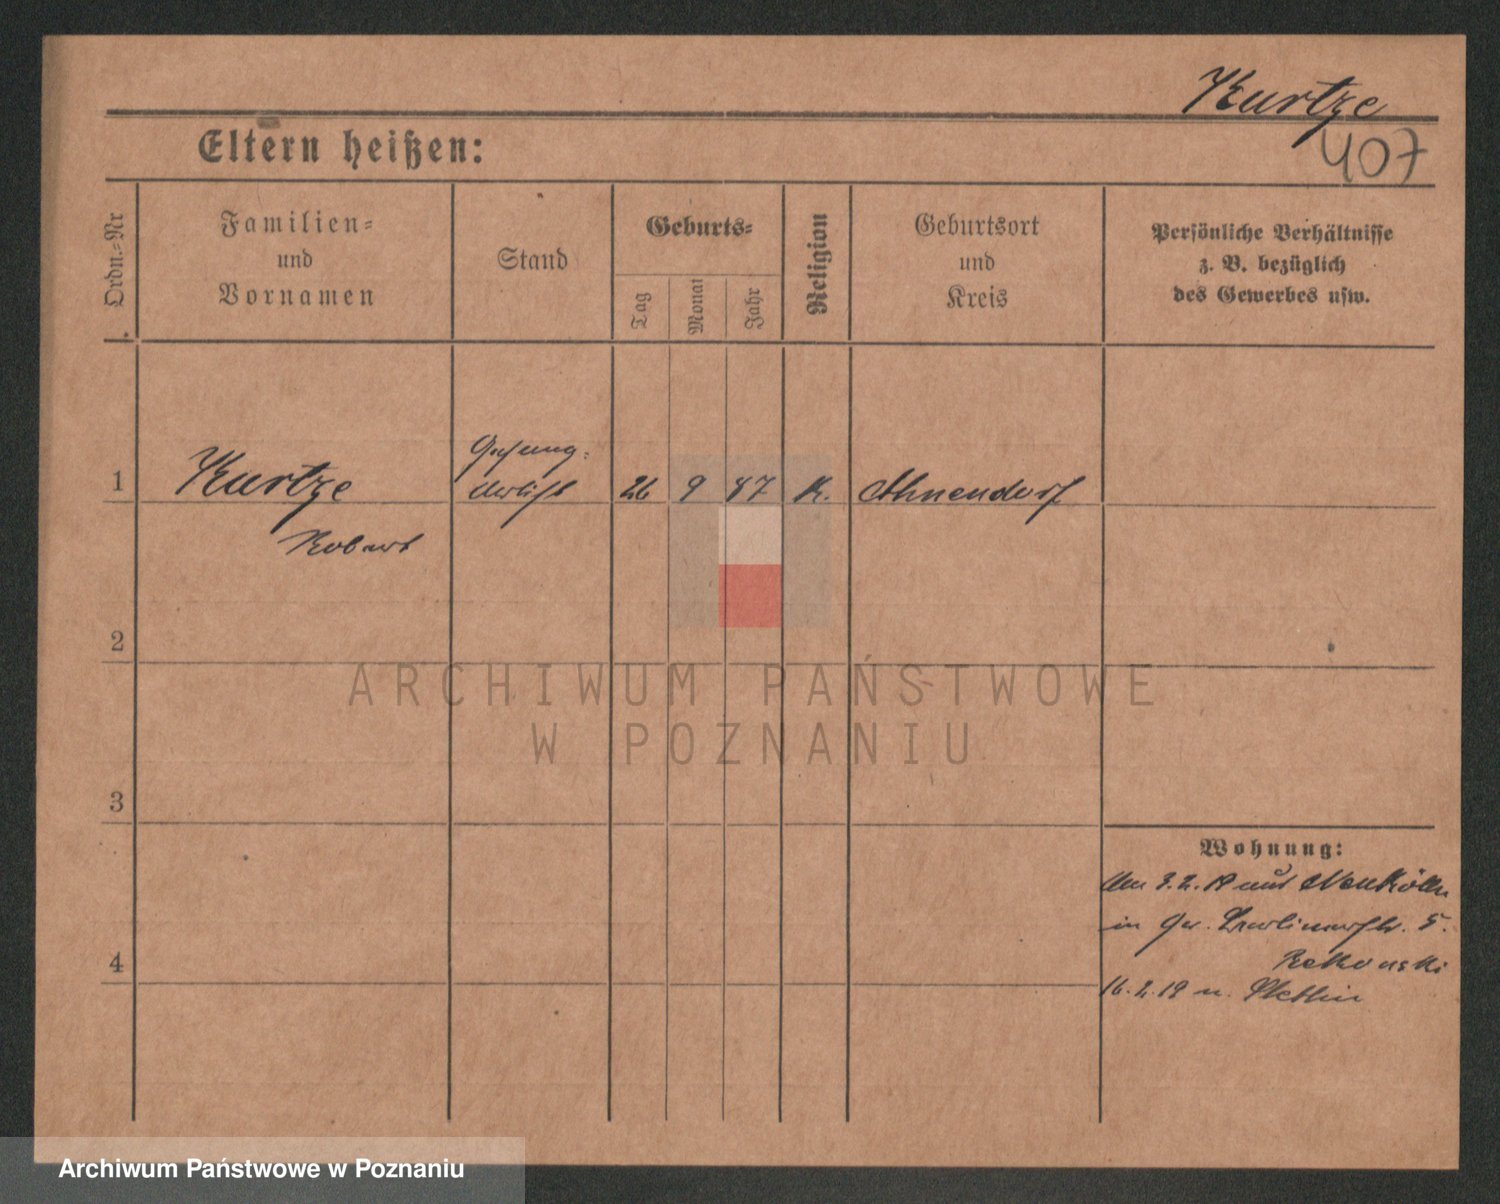 Kurtze
407
Eltern heißen:
Ordn.=Nr.
Familien=
und
Vornamen
Stand
Geburts=
Tag
Monat
Jahr
Religion
Geburtsort
und
Kreis
Persönliche Verhältnisse
z. B. bezüglich
des Gewerbes usw.
1
Kurtze
26 9 87 K.
Robert
2
ARCHIWUM PAŃSTWOWE
W POZNANIU
3
Wohnung:
3.2.19 aus Neukölln
in 5.
4
16.2.19 n. Stettin
Archiwum Państwowe w Poznaniu